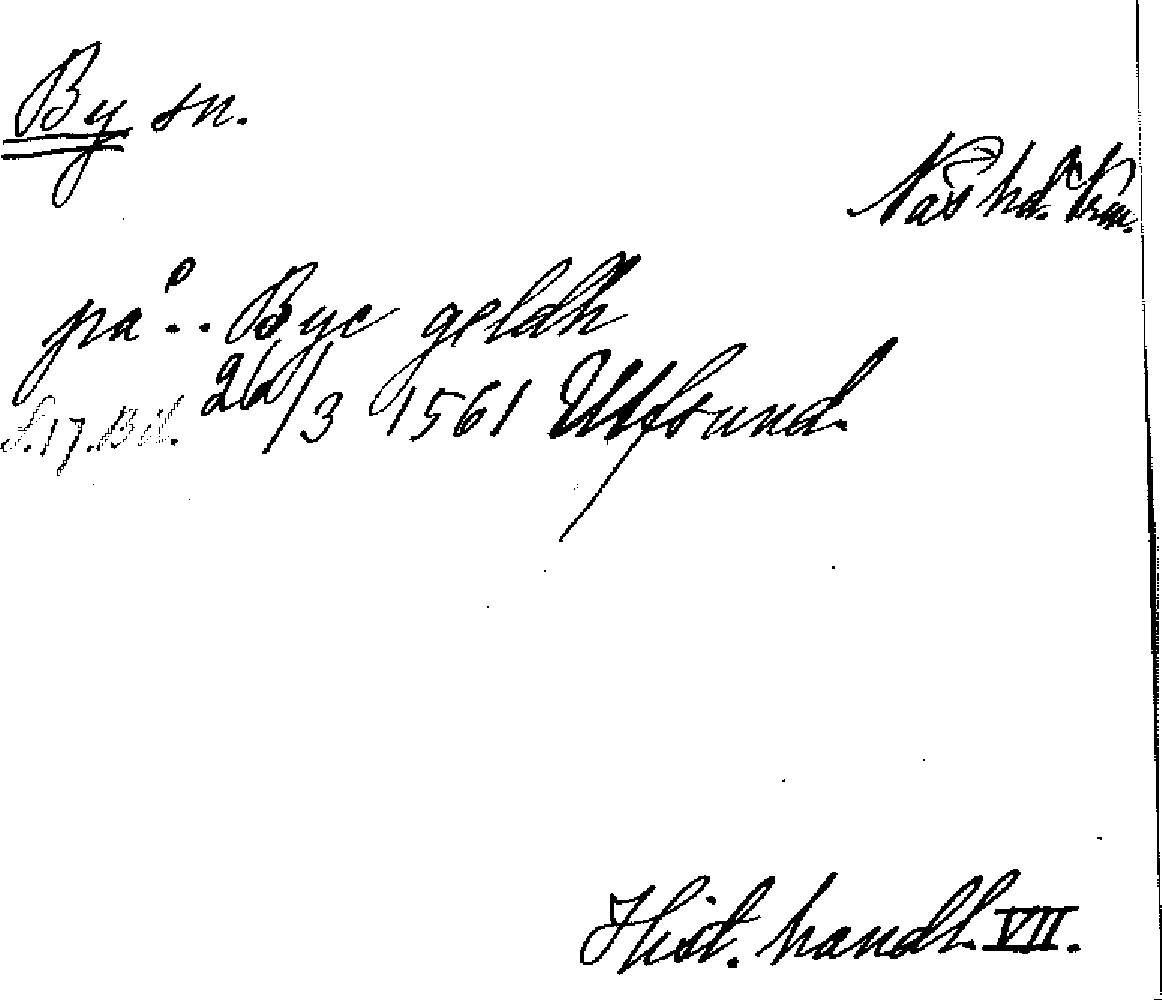 By sn.
Näs hd. Vrm.
på .. Bye geldh
S. 17. Bil. 26/3 1561 Ulfsund.
Hist. handl. VII.